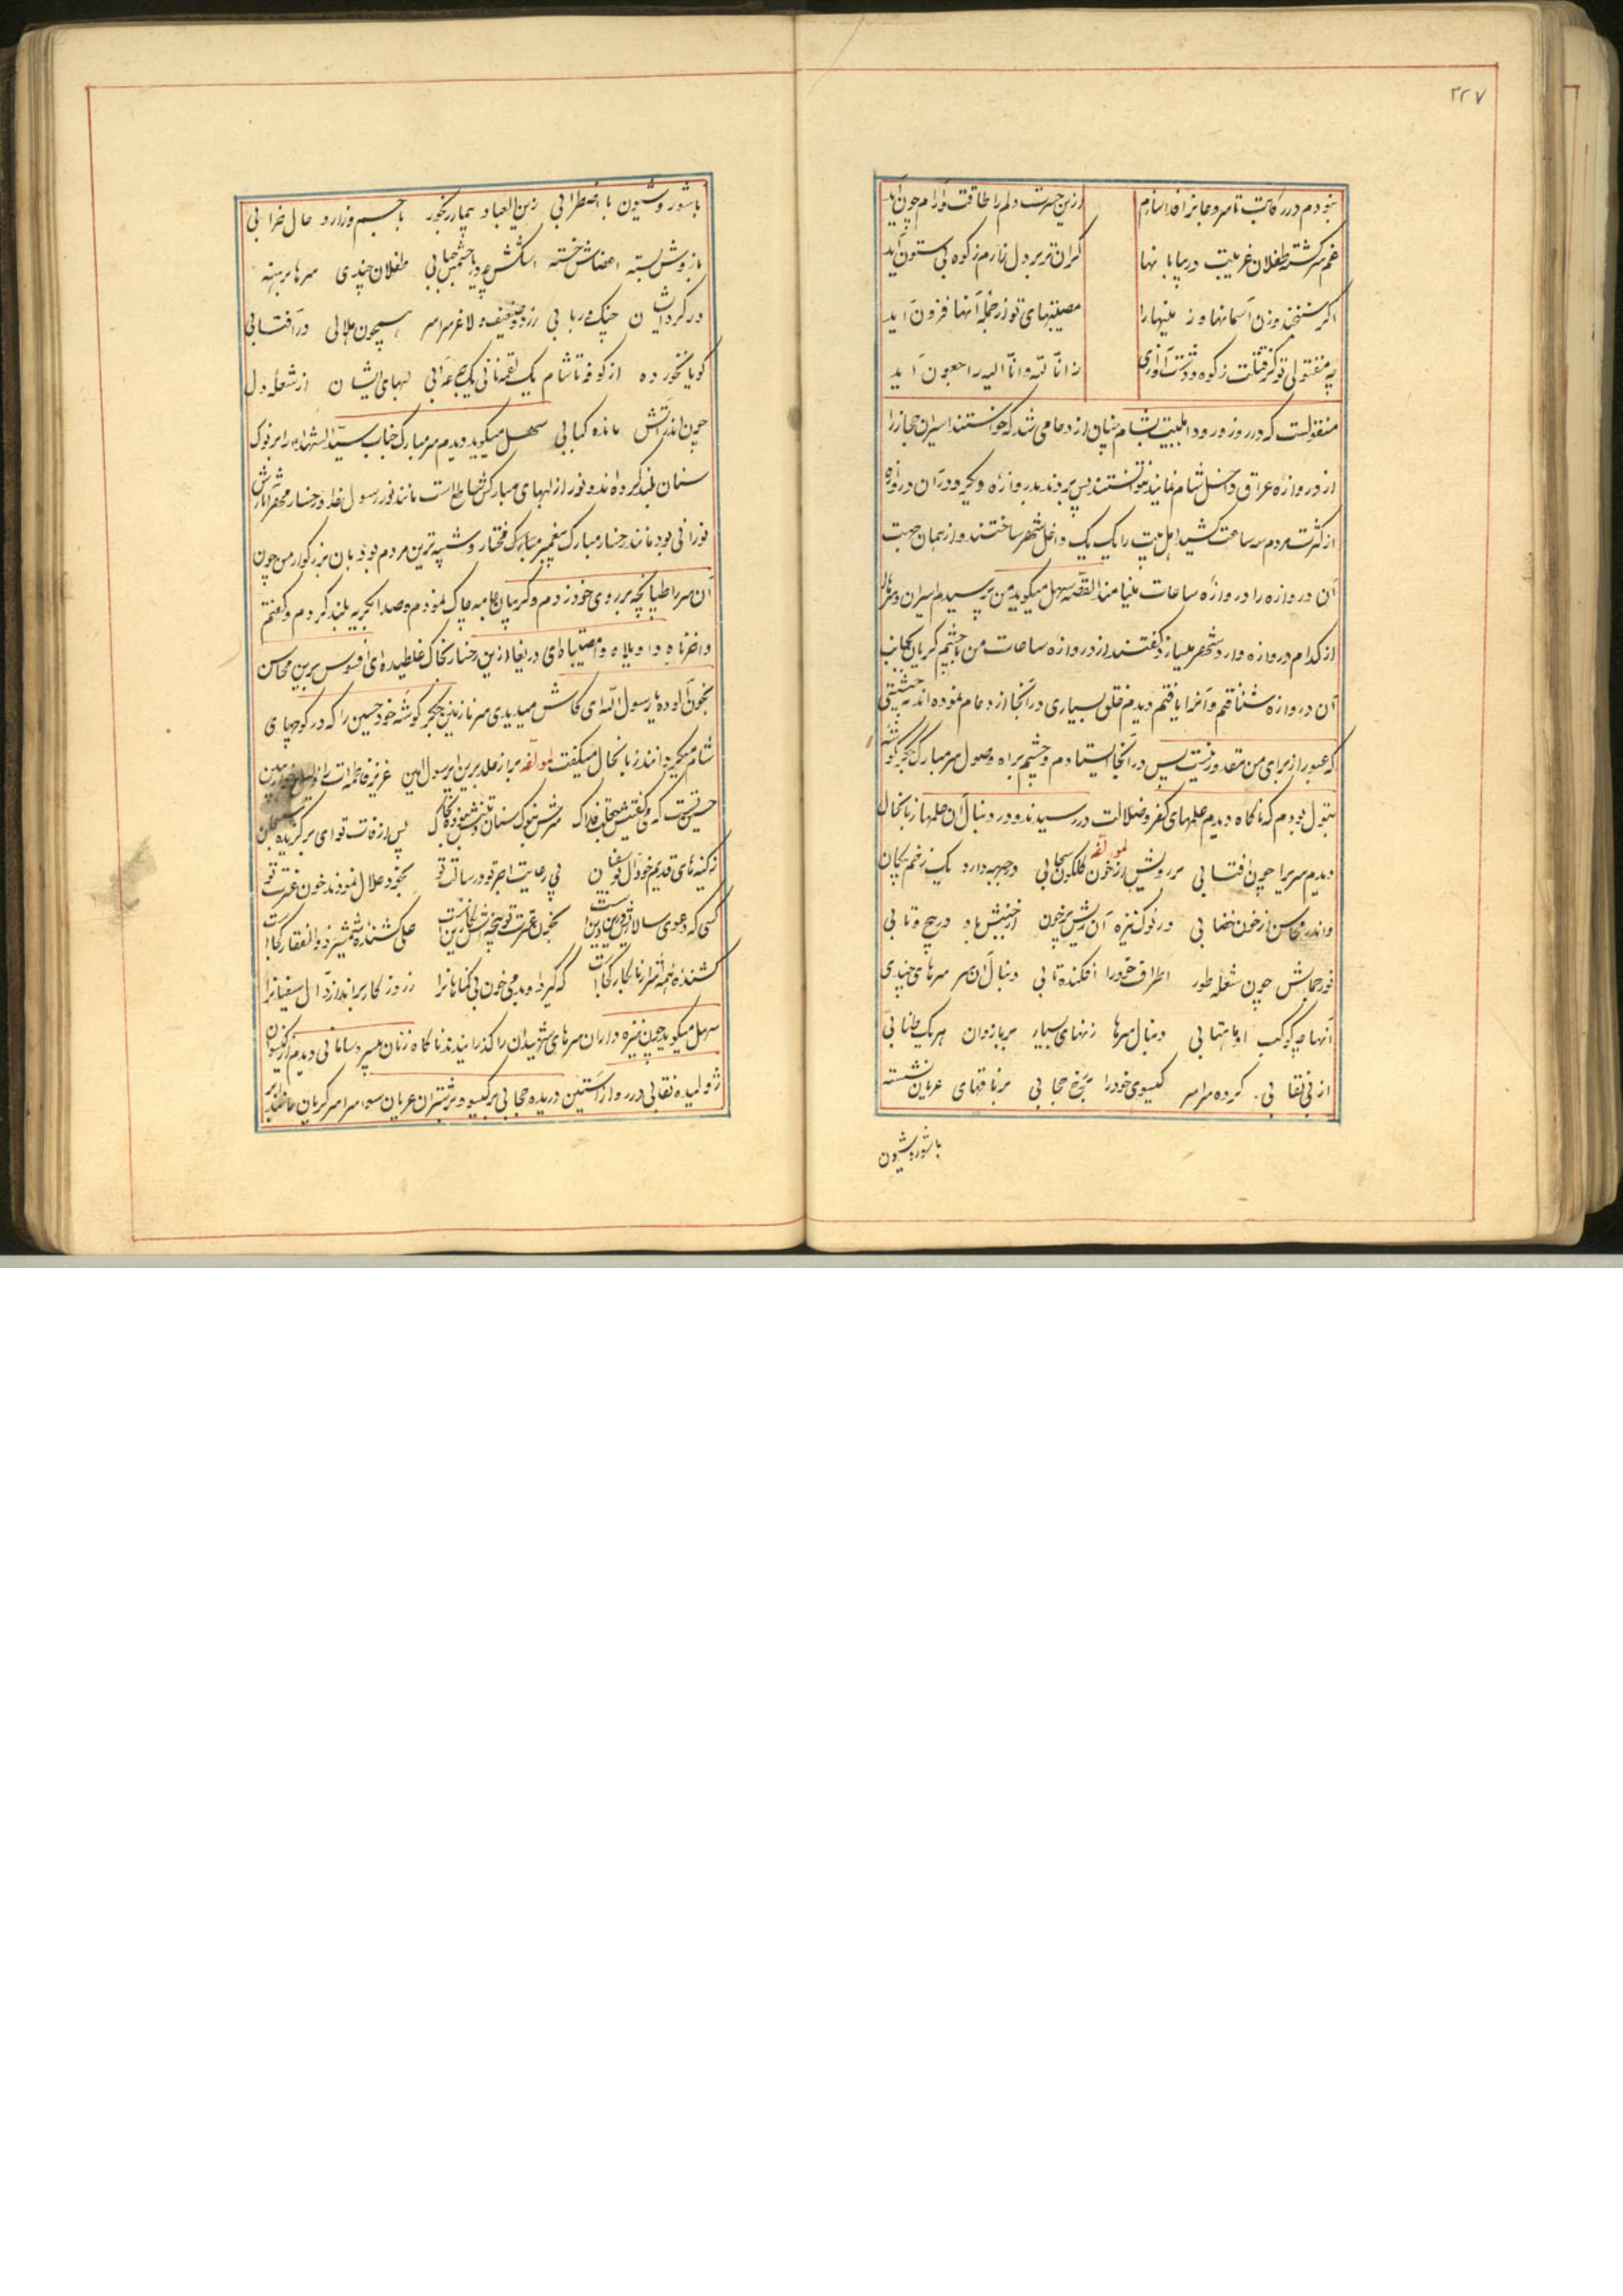 ۲۲۷
نبودم در رکابت تا سر و جانرا فدا سازم ازین حسرت دلم را طاقت و آرام چون آید
غم سرگشته طفلان غریبت در بیابانها گران تر بر دل زارم ز کوه بی ستون آید
اگر سنجند وزن آسمانها و زمینها را مصیبتهای تو از جمله آنها فزون آید
انا لله وانا الیه راجعون آید
منقولست که در روز ورود اهلبیت بشام چنان ازدحامی شد که خواستند اسیران حجاز را
از دروازه عراق داخل شام نمایند نتوانستند پس بردند بدروازه دیگر و در آن دروازه
از کثرت مردم سه ساعت کشید اهل بیت را یک یک داخل شهر ساختند و از همان جهت
آن دروازه را دروازه ساعات مینامند القصه سهل میگوید من پرسیدم اسیران و سرها
از کدام دروازه وارد شهر میسازند گفتند از دروازه ساعات من با چشم گریان بجانب
آن دروازه شتافتم و آنرا یافتم دیدم خلق بسیاری در آنجا ازدحام نموده اند به حیثیتی
که عبور از برای من مقدور نیست پس در آنجا ایستادم و چشم براه وصول سر مبارک جگر گوشه
بتول بودم که ناگاه دیدم علمهای کفر و ضلالت در رسیدند و در دنبال آن علمها زبانحال
لمولفه
دیدم سریرا چون آفتابی بر رویش از خون گلگون سحابی در جبهه دارد یک زخم پیکان
واندر محاسن از خون خضابی در نوک نیزه آن ریش پرخون از جنبش باد در پیچ و تابی
نور جمالش چون شعله طور اطراف خود را افکنده تابی دنبال آن سر سرهای چندی
آنها چو کوکب او ماهتابی دنبال سرها زنهای بسیار بر بازوان هر یک طنابی
از بی نقابی کرده سراسر گیسوی خود را بر رخ حجابی بر ناقهای عریان نشسته
با شور و شیون
با شور و شیون با اضطرابی زین العباد بیمار رنجور با جسم زار و حال خرابی
بازوش بسته اعضاش خسته اشکش چو با چشم طفلان چندی سرها برهنه
در گردایشان چنگ و ربابی زرد و ضعیف و لاغر سراسر همچون هلالی در آفتابی
گویا نخورده از کوفه تا شام یک لقمه نانی یک جرعه آبی لبهای ایشان از شعله دل
چون اندر آتش مانده کبابی سهل میگوید دیدم سر مبارک جناب سید الشهداء را بر نوک
سنان بلند کرده اند و نور از لبهای مبارکش ساطع است مانند نور رسول خدا و رخسار
نورانی بود مانند رخسار مبارک پیغمبر مختار و شبیه ترین مردم بود بان بزرگوار من چون
آن سر را طپانچه بر روی خود زدم و گریبان جامه چاک نمودم و صدا بگریه بلند کردم و گفتم
واحزناه واویلاه وامصیبتاه ای دریغا ازین رخسار بخاک غلطیده ای افسوس برین محاسن
بخون آلوده یا رسول الله ای کاش میدیدی سر نازنین جگر گوشه خود حسین را که در کوچهای
شام میگردانند زبانحال میگفت لمولفه برار خلد برین ای رسول امین عزیز فاطمه ات را
حسین تست که سرش بنوک سنان پس از وفات تو ای برگزیده سبحان
ز کینه های قدیم خود آل بوسفیان پی رعایت اجر تو در رسالت تو بخود حلال نمودند خون عترت تو
کسی که دعوی سالاری بخون عترت تو پنجه اش علی کشنده شمشیر ذوالفقار کجاست
کشنده همه اشرار نابکار کجاست که گیرد او بدمی خون بی گناهانرا ز روزگار براندازد آل سفیانرا
سهل میگوید چون نیزه داران سرهای شهیدان را گذرانیدند ناگاه زنان بیسر و سامانی دیدم از گیسوان
ژولیده نقابی در رو از آستین دریده حجابی بر گیسو و بر شتران عریان سوار سراسر گریان